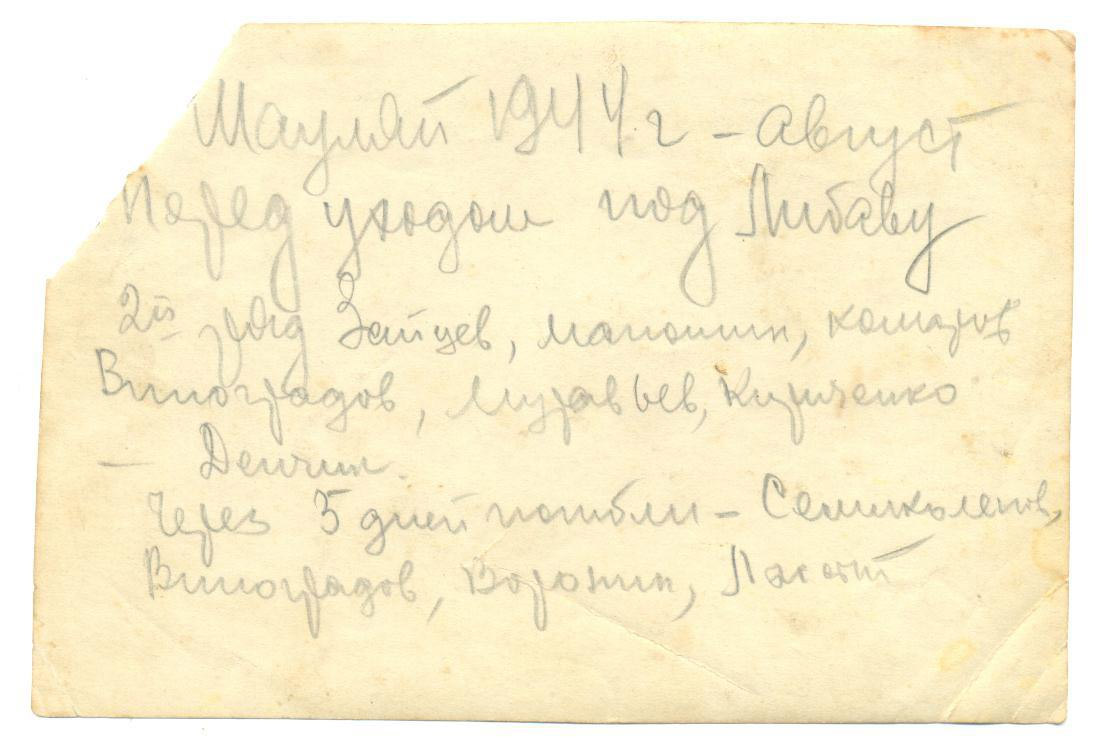 Шауляй 1944 г – август
Перед уходом под Либаву
2й ряд Зайцев, Мапошин, Комаров
Виноградов, Муравьев, Кириченко
– Денчик.
Через 5 дней погибли – Семиколенов,
Виноградов, Воронин,